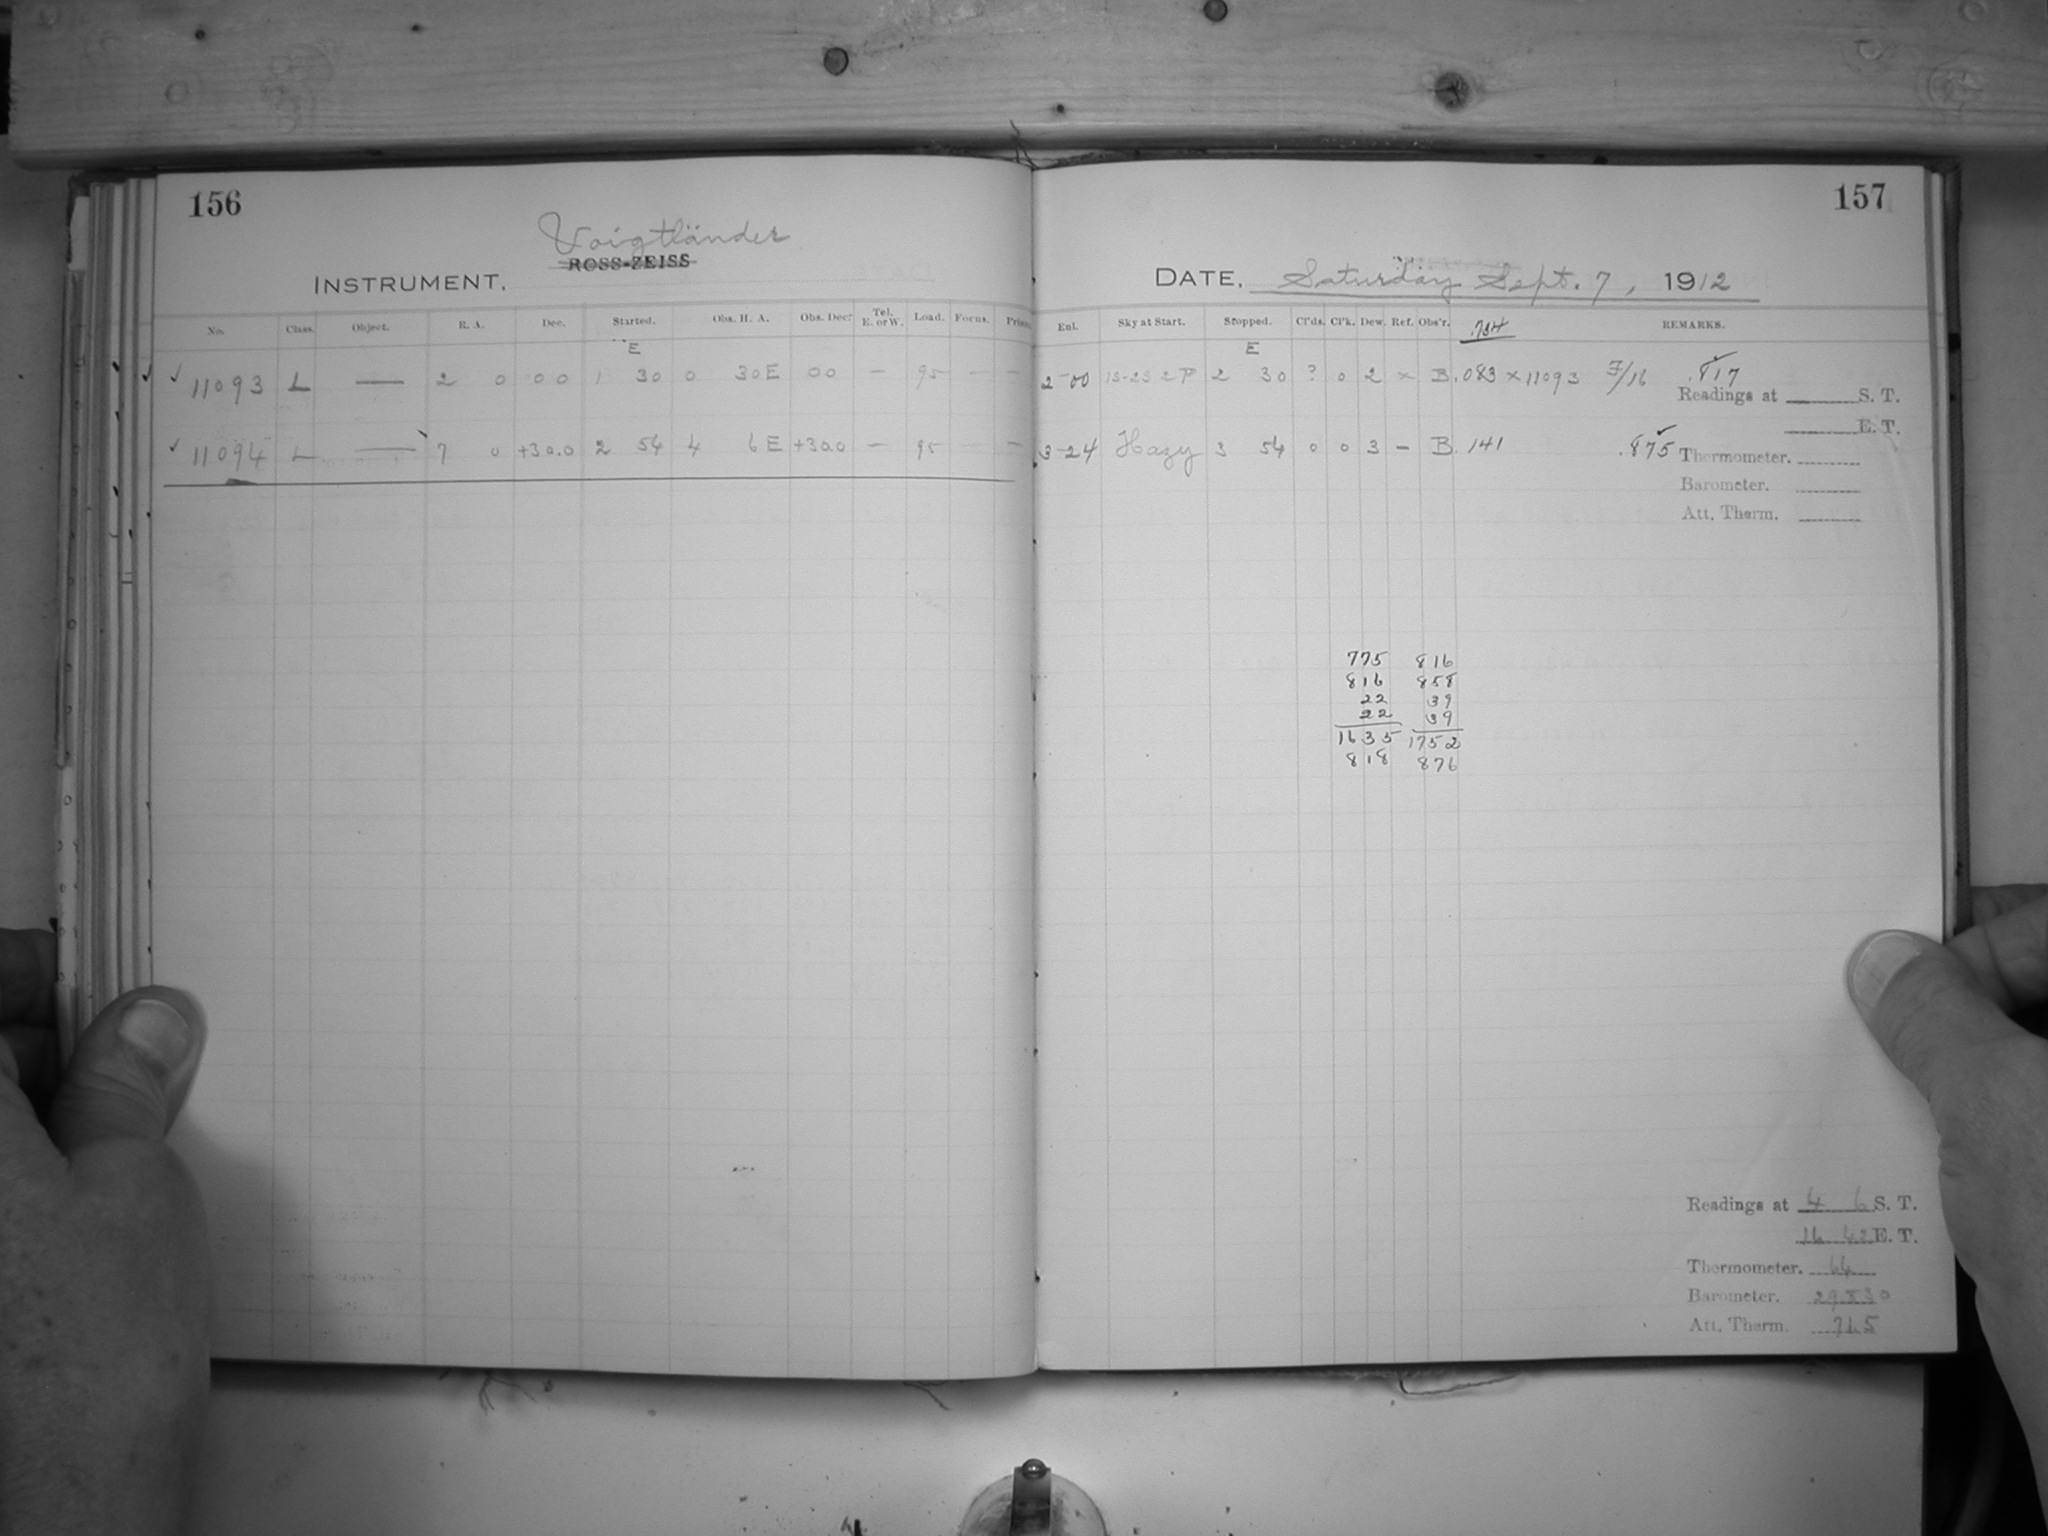 156
Voigtländer
ROSS-ZEISS
INSTRUMENT.
No. Class. Object. R. A. Dec. Started. Obs. H. A. Obs. Dec. Tel. E. or W. Load. Focus. Prism
E
✓ 11093 L — 2 0 00 1 30 0 30E 00 — 95 — —
✓ 11094 L — 7 0 +30.0 2 54 4 6E +30.0 — 95 — —
157
DATE. Saturday Sept. 7, 1912
Ent. Sky at Start. Stopped. Cl'ds. Cl'k. Dew. Ref. Obs'r. .734 REMARKS.
E
2-00 15-25 2P 2 30 ? 0 2 × B .083 × 11093 I/16 .817
Readings at S. T.
E. T.
3-24 Hazy 3 54 0 0 3 — B. 141 .875
Thermometer.
Barometer.
Att. Therm.
775 816
816 858
22 39
22 39
1635 1752
818 876
Readings at 4 6 S. T.
16 42 E. T.
Thermometer. 64
Barometer. 29.830
Att. Therm. 71.5